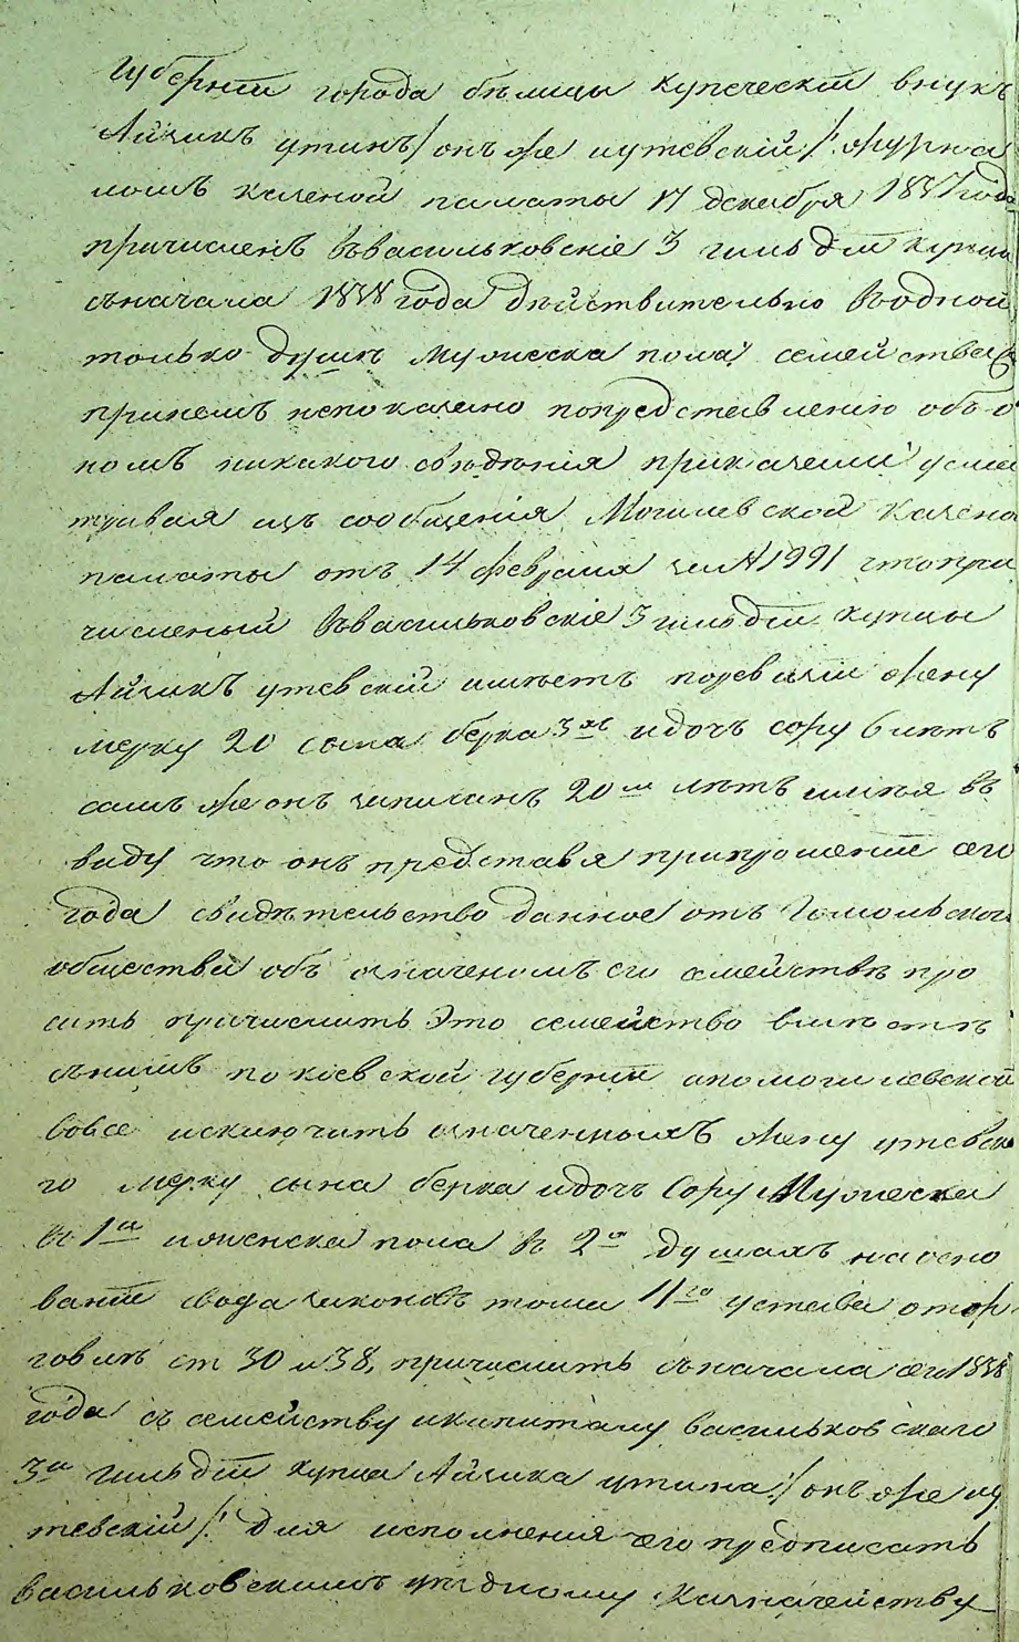 Губерніи города бѣлицы купеческій внукъ
Айзикъ утинъ /: онъ же утевскій :/ журна
ломъ казеной палаты 17 декабря 1837 года
причисленъ въвасильковскіе 3 гильдіи купцы
съначала 1838 года дѣйствительно въодной
только душѣ мужеска пола семейства
принемъ непоказано попредставленію обо
номъ никакого свѣдѣнія приказали усма
тривая изъ сообщенія Могилевской Казено
палаты отъ 14 февраля за № 1991 чтопри
численый въвасильковскіе 3 гильдіи купцы
Айзикъ утевскій имѣетъ поревизіи жену
мерку 20 сына берка 3хъ идочь сору 6 лѣтъ
самъ же онъ записанъ 20 лѣтъ имѣя въ
виду что онъ представя припрошеніи сего
года свидѣтельство данное отъ Гомельскаго
общества объ означеномъ его семействѣ про
ситъ причислить Это семейство вмѣстѣ
снимъ покіевской губерніи апомогилевской
вовсе исключить означенныхъ жену утевска
го мерку сына берка идочь Сору Мужеска
въ 1й иженска пола въ 2хъ душахъ наосно
ваніи свода законовъ тома 11го устава отор
говлѣ ст 30 и 38, причислить съначала сего 1838
года къ семейству икапиталу васильковскаго
3й гильдіи купца Айзика утина /: онъ же у
тевскій :/ для исполненія чего предписать
васильковскому уѣздному Казначейству